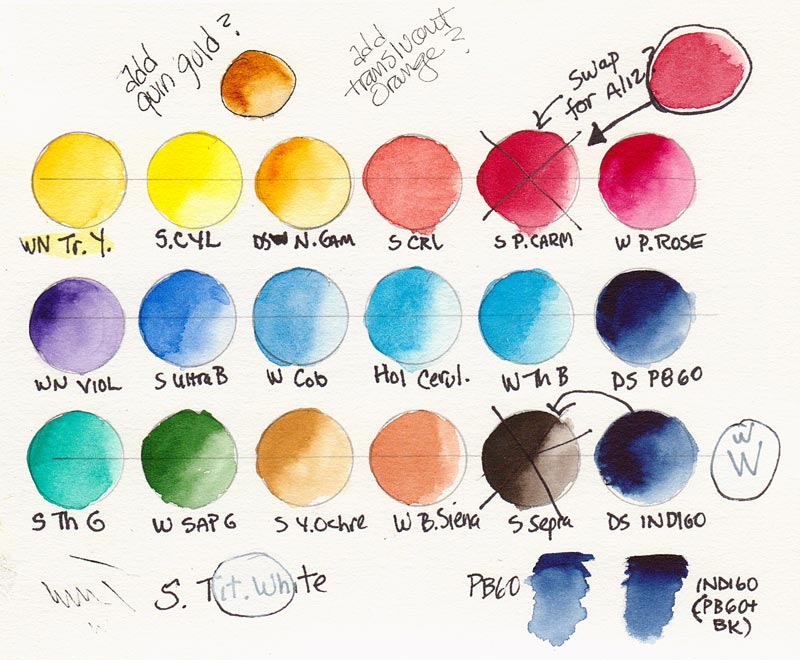 add
quin gold?
add
translucent
orange?
swap
for Aliz?
WN Tr. Y.
S. CYL
DS N. GAM
S CRL
S P. CARM
W P. ROSE
WN VIOL
S Ultra B
W Cob
Hol Cerul.
W Th B
DS PB60
S Th G
W SAP G
S Y. Ochre
W B. Siena
S Sepia
DS INDIGO
W
W
S. Tit. White
PB60
INDIGO
(PB60+
BK)